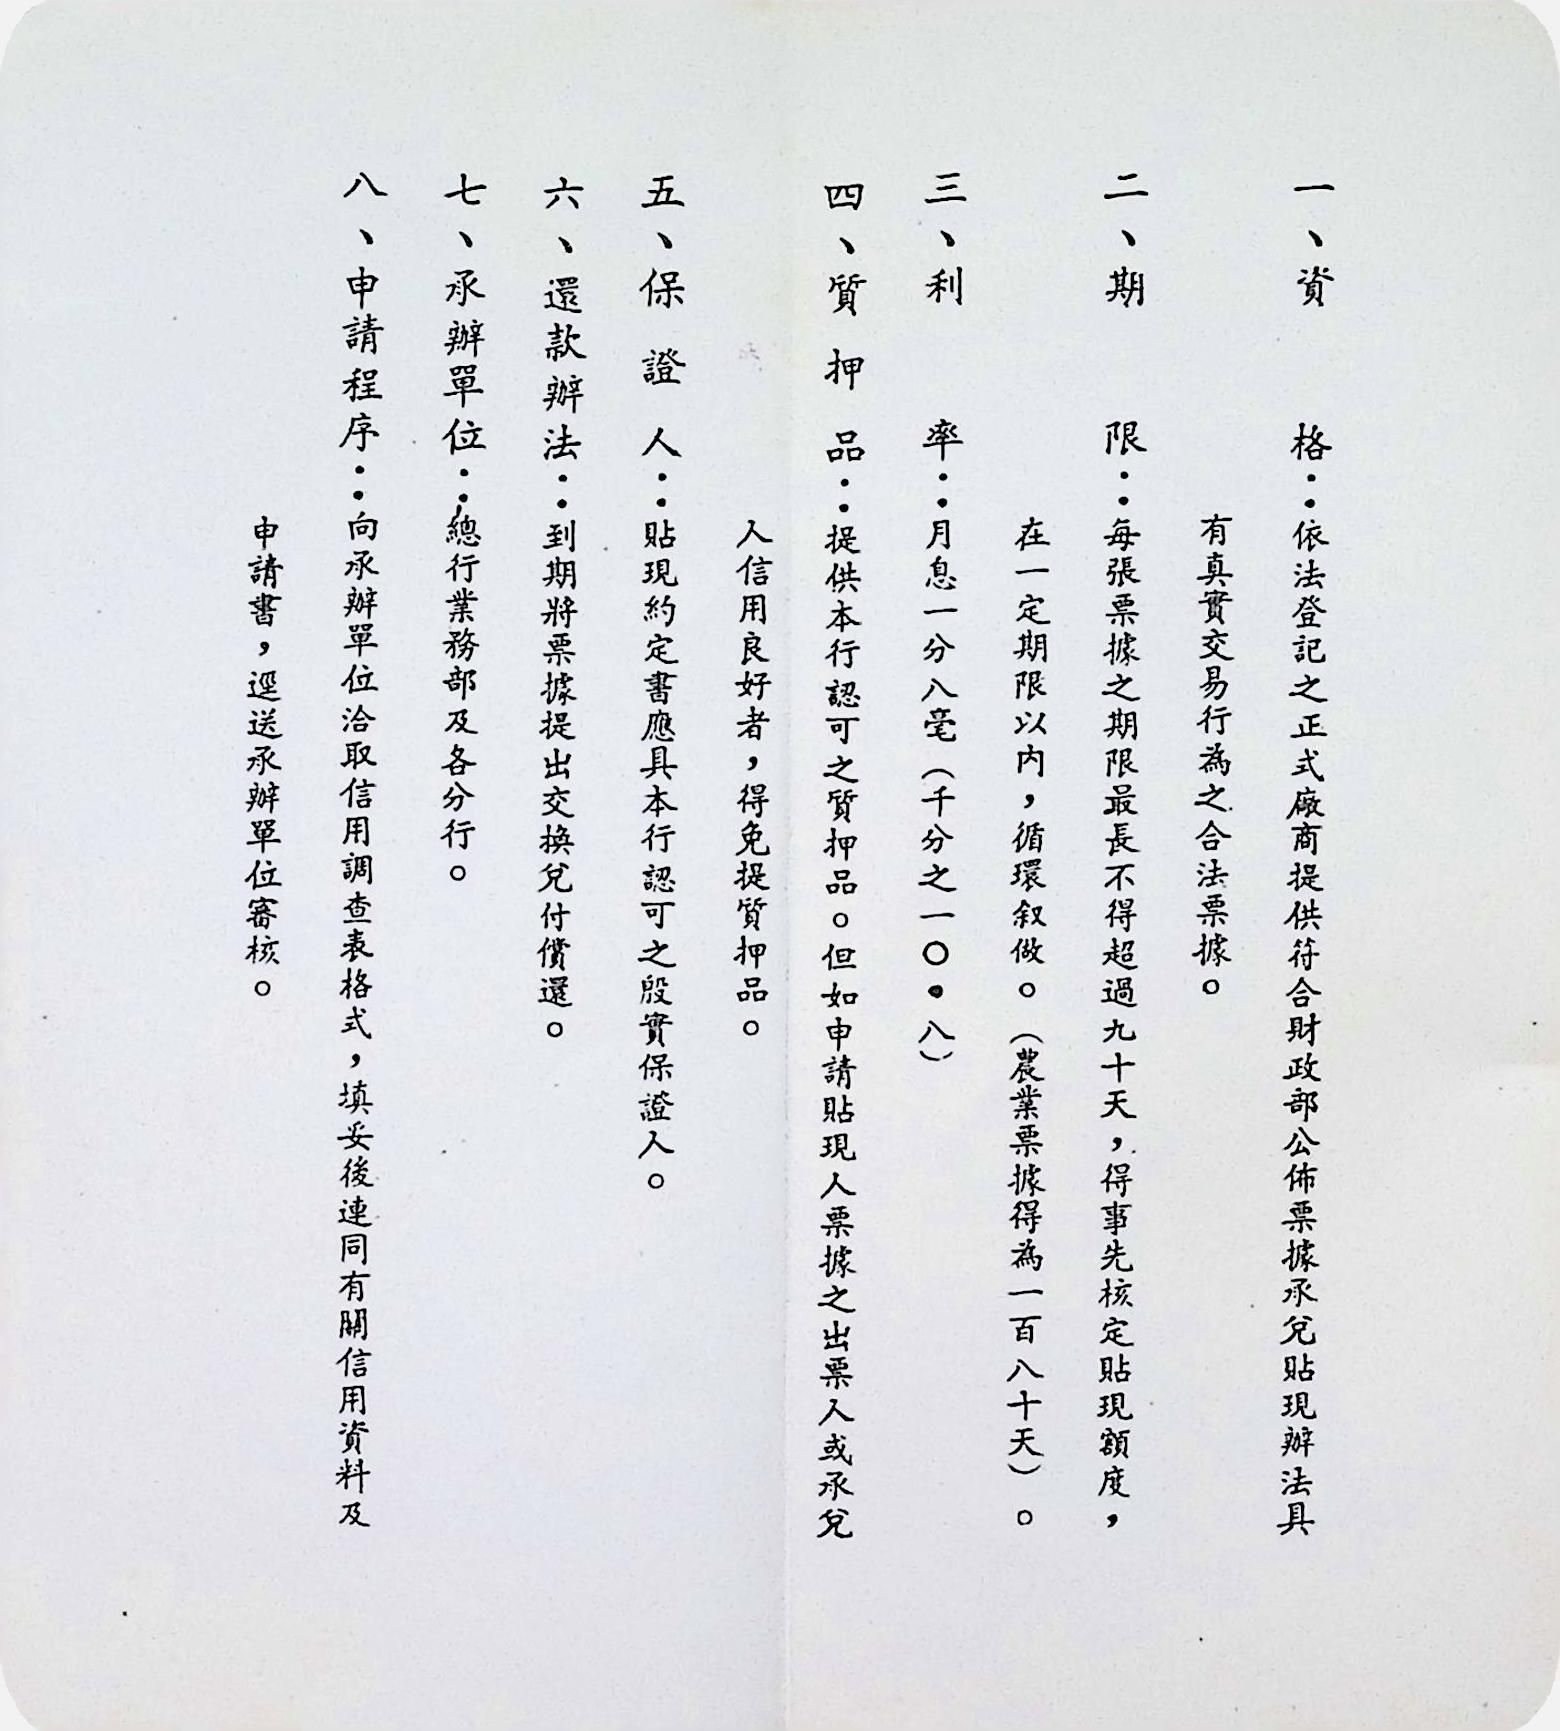 一、資格：依法登記之正式廠商提供符合財政部公佈票據承兌貼現辦法具
有真實交易行為之合法票據。
二、期限：每張票據之期限最長不得超過九十天，得事先核定貼現額度，
在一定期限以內，循環叙做。（農業票據得為一百八十天）。
三、利率：月息一分八毫（千分之一〇•八）
四、質押品：提供本行認可之質押品。但如申請貼現人票據之出票人或承兌
人信用良好者，得免提質押品。
五、保證人：貼現約定書應具本行認可之殷實保證人。
六、還款辦法：到期將票據提出交換兌付償還。
七、承辦單位：總行業務部及各分行。
八、申請程序：向承辦單位洽取信用調查表格式，填妥後連同有關信用資料及
申請書，逕送承辦單位審核。